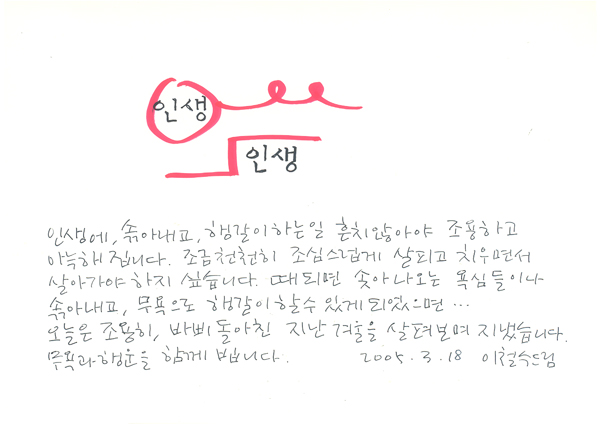 인생
인생
인생에, 솎아내고, 행갈이 하는 일 흔치않아야 조용하고
아늑해집니다. 조금 천천히 조심스럽게 살피고 치우면서
살아가야 하지 싶습니다. 때 되면 솟아나오는 욕심들이나
솎아내고, 무욕으로 행갈이 할 수 있게 되었으면 …
오늘은 조용히, 바삐 돌아친 지난 겨울을 살펴보며 지냈습니다.
무욕과 행운을 함께 빕니다. 2005. 3. 18 이철수드림